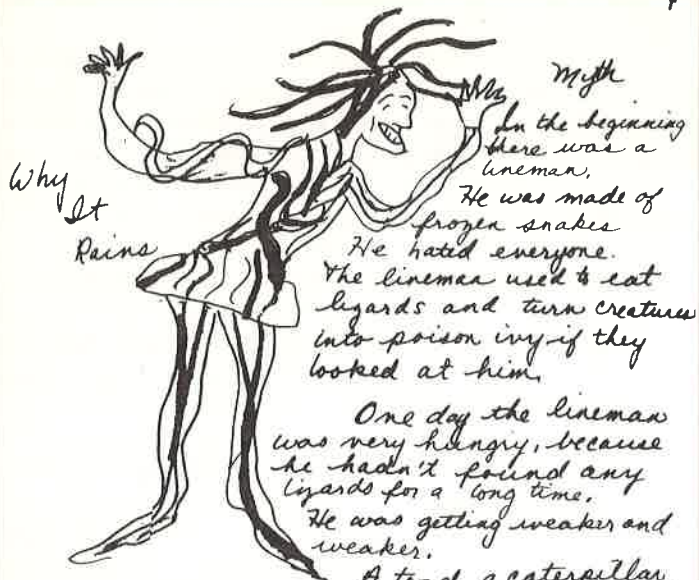 Why
It
Rains
Myth
In the beginning
there was a
lineman.
He was made of
frozen snakes
He hated everyone.
The lineman used to eat
lizards and turn creatures
into poison ivy if they
looked at him.
One day the lineman
was very hungry, because
he hadn't found any
lizards for a long time.
He was getting weaker and
weaker.
a caterpillar